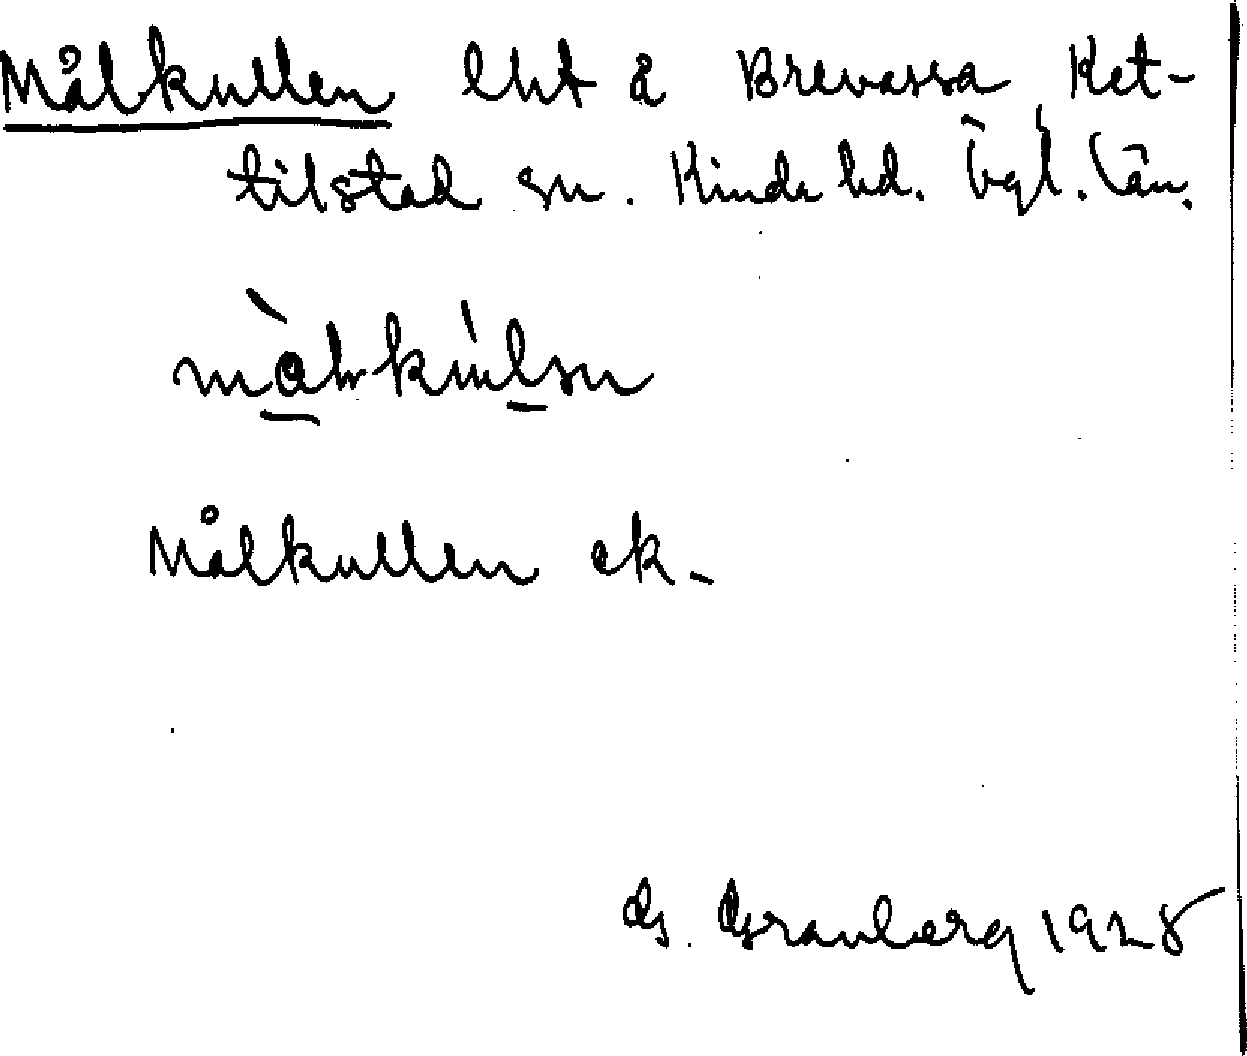 Målkullen lht å Brevassa Ket-
tilstad sn. Kinda hd. Ögl. län.
Målkullen ek.
G. Granberg 1928